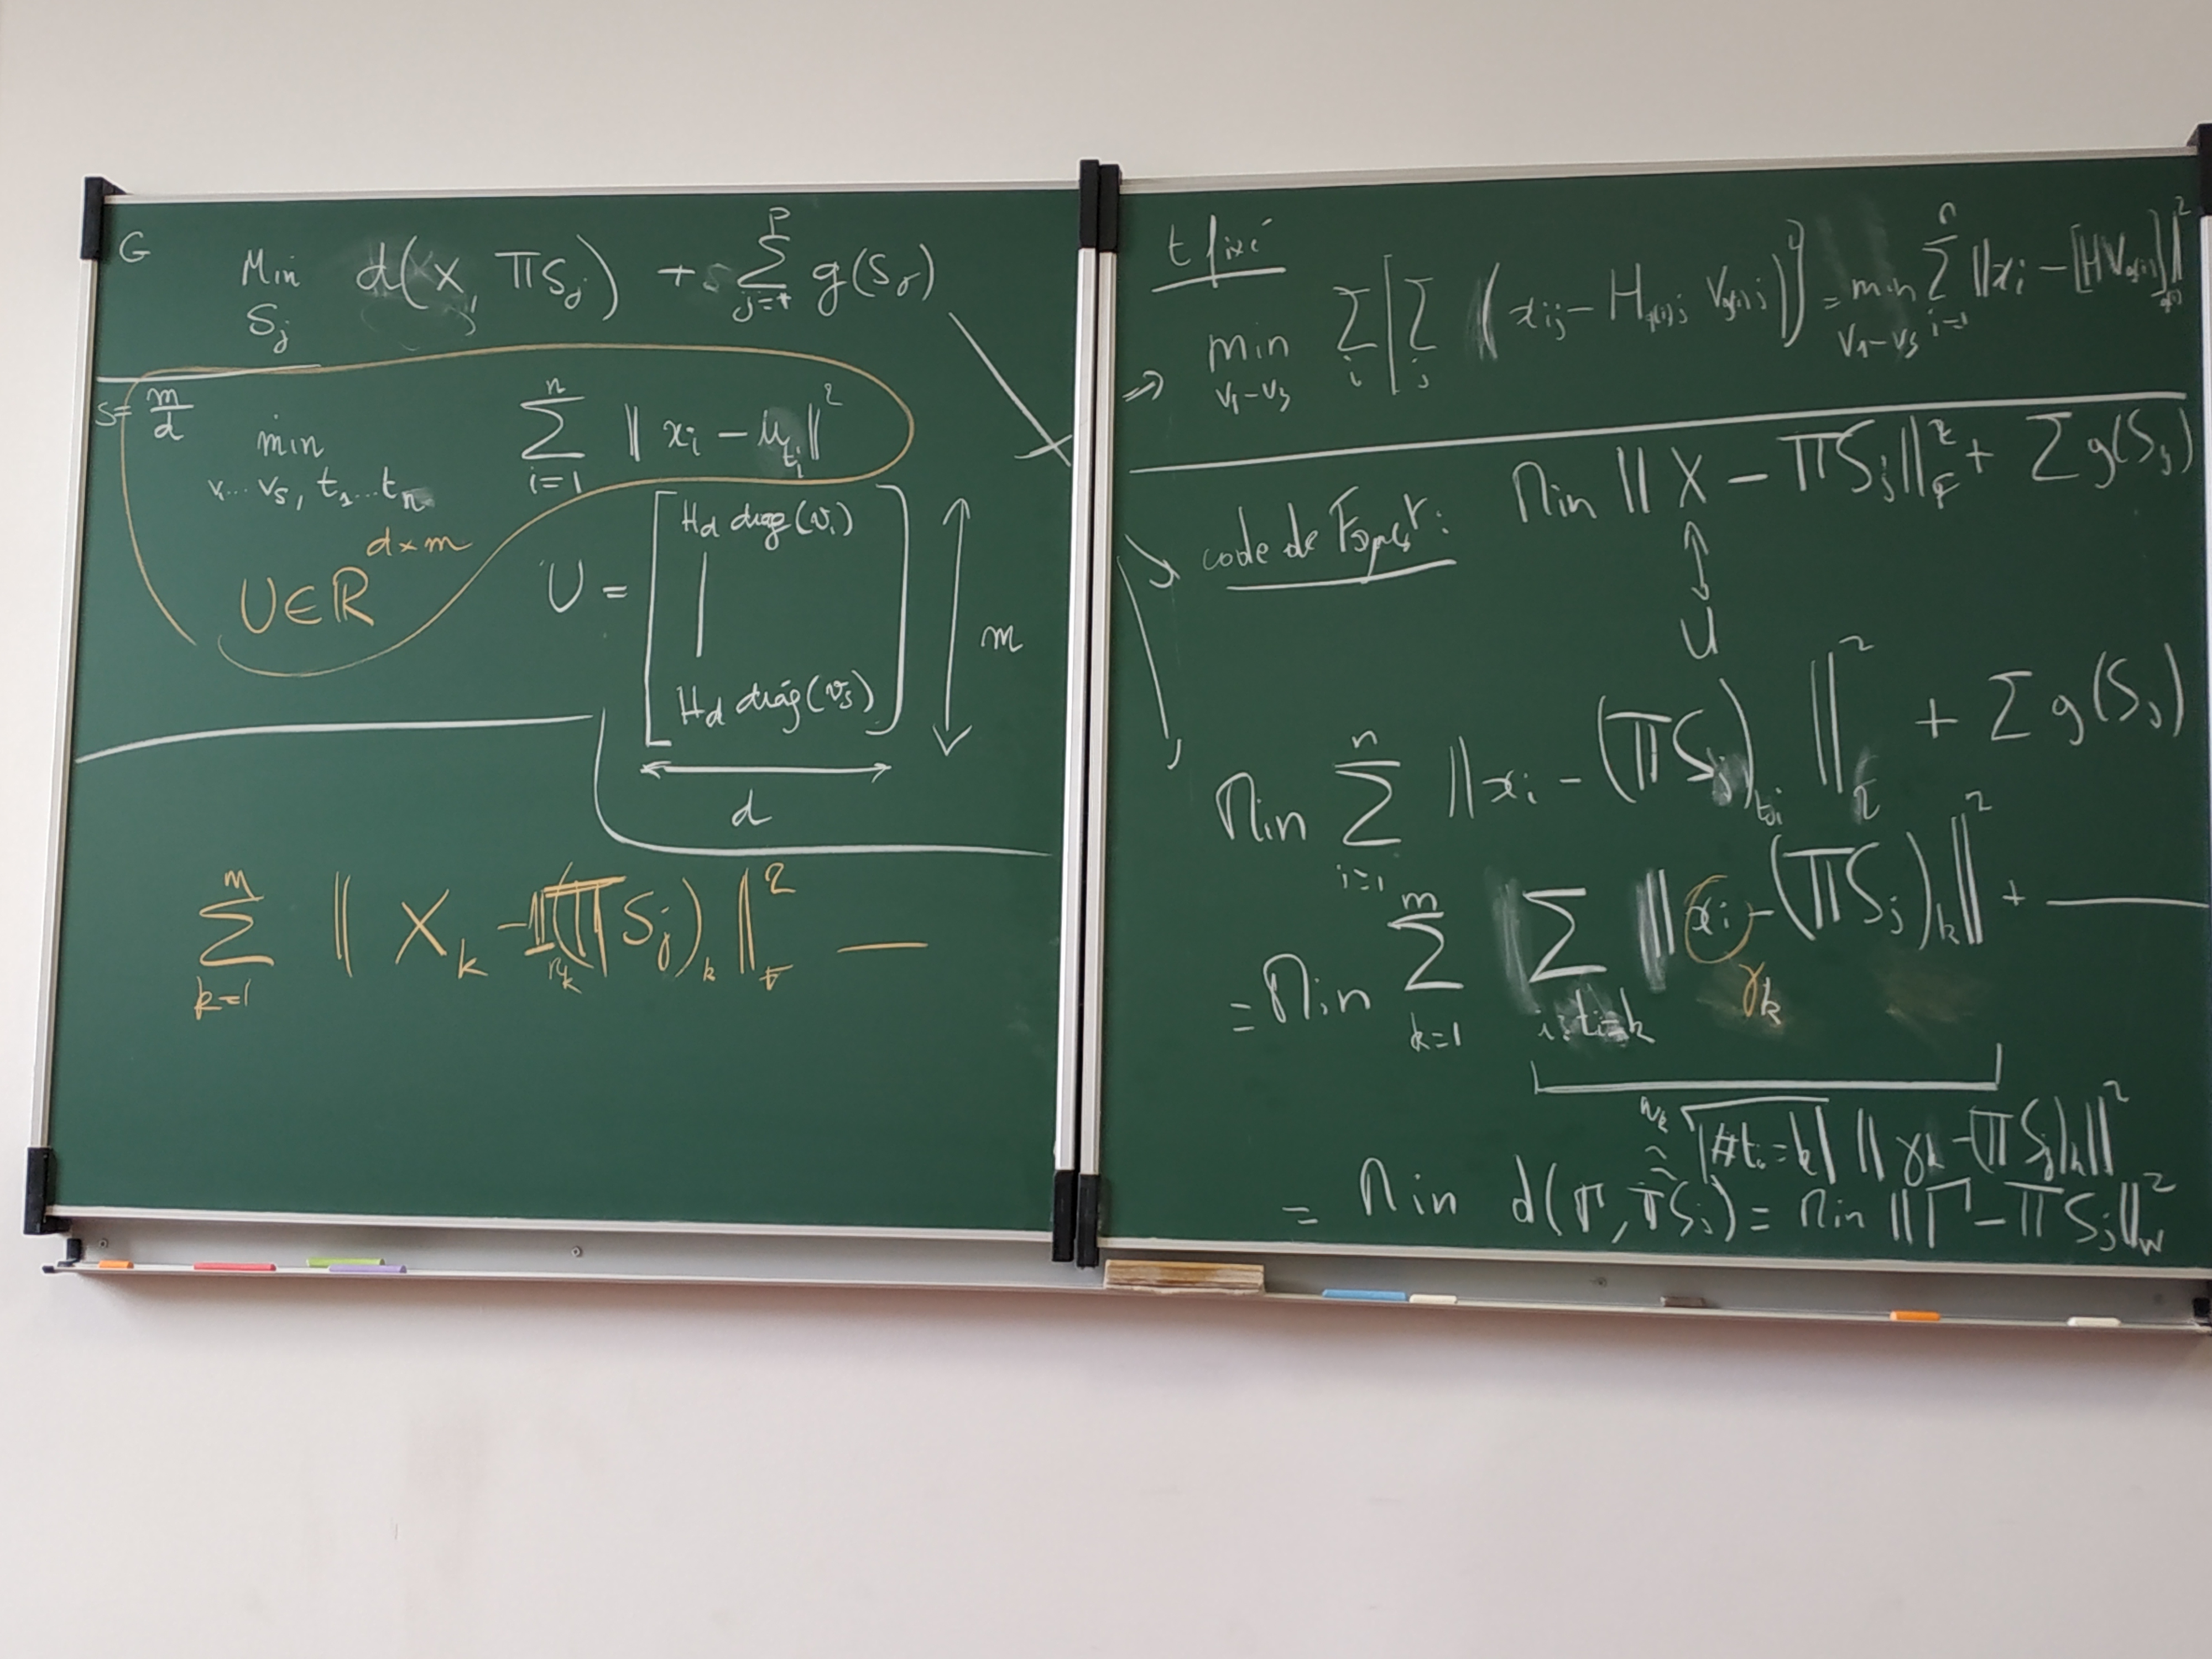 G
Min d(X, ΠS_j) + Σ_{j=1}^{P} g(S_j)
S_j
s = m/d
min_{v_1...v_s, t_1...t_n} Σ_{i=1}^{n} ‖x_i − u_{t_i}‖²
U ∈ R^{d×m}
U = [ H_d diag(v_1) | H_d diag(v_s) ] m
d
Σ_{k=1}^{m} ‖ X_k − 1_{n_k} (Π S_j)_k ‖_F^2 —
t fixé
⇒ min_{v_1–v_s} Σ_i [ Σ_j (x_{ij} − H_{q(i)j} V_{g(i)j})²] = min_{v_1–v_s} Σ_{i=1}^{n} ‖x_i − [HV_{g(i)}]‖²
code de : Min ‖X − ΠS_j‖_F^2 + Σ g(S_j)
↕
U
Min Σ_{i=1}^{n} ‖x_i − (ΠS_j)_{t_i}‖_2^2 + Σ g(S_j)
= Min Σ_{k=1}^{m} Σ_{i: t_i=k} ‖x_i − (ΠS_j)_k‖² + —
γ_k
w_k √|#t_i = k| ‖γ_k − (ΠS_j)_k‖²
= Min d(Γ, ΠS_j) = Min ‖Γ − ΠS_j‖_W^2